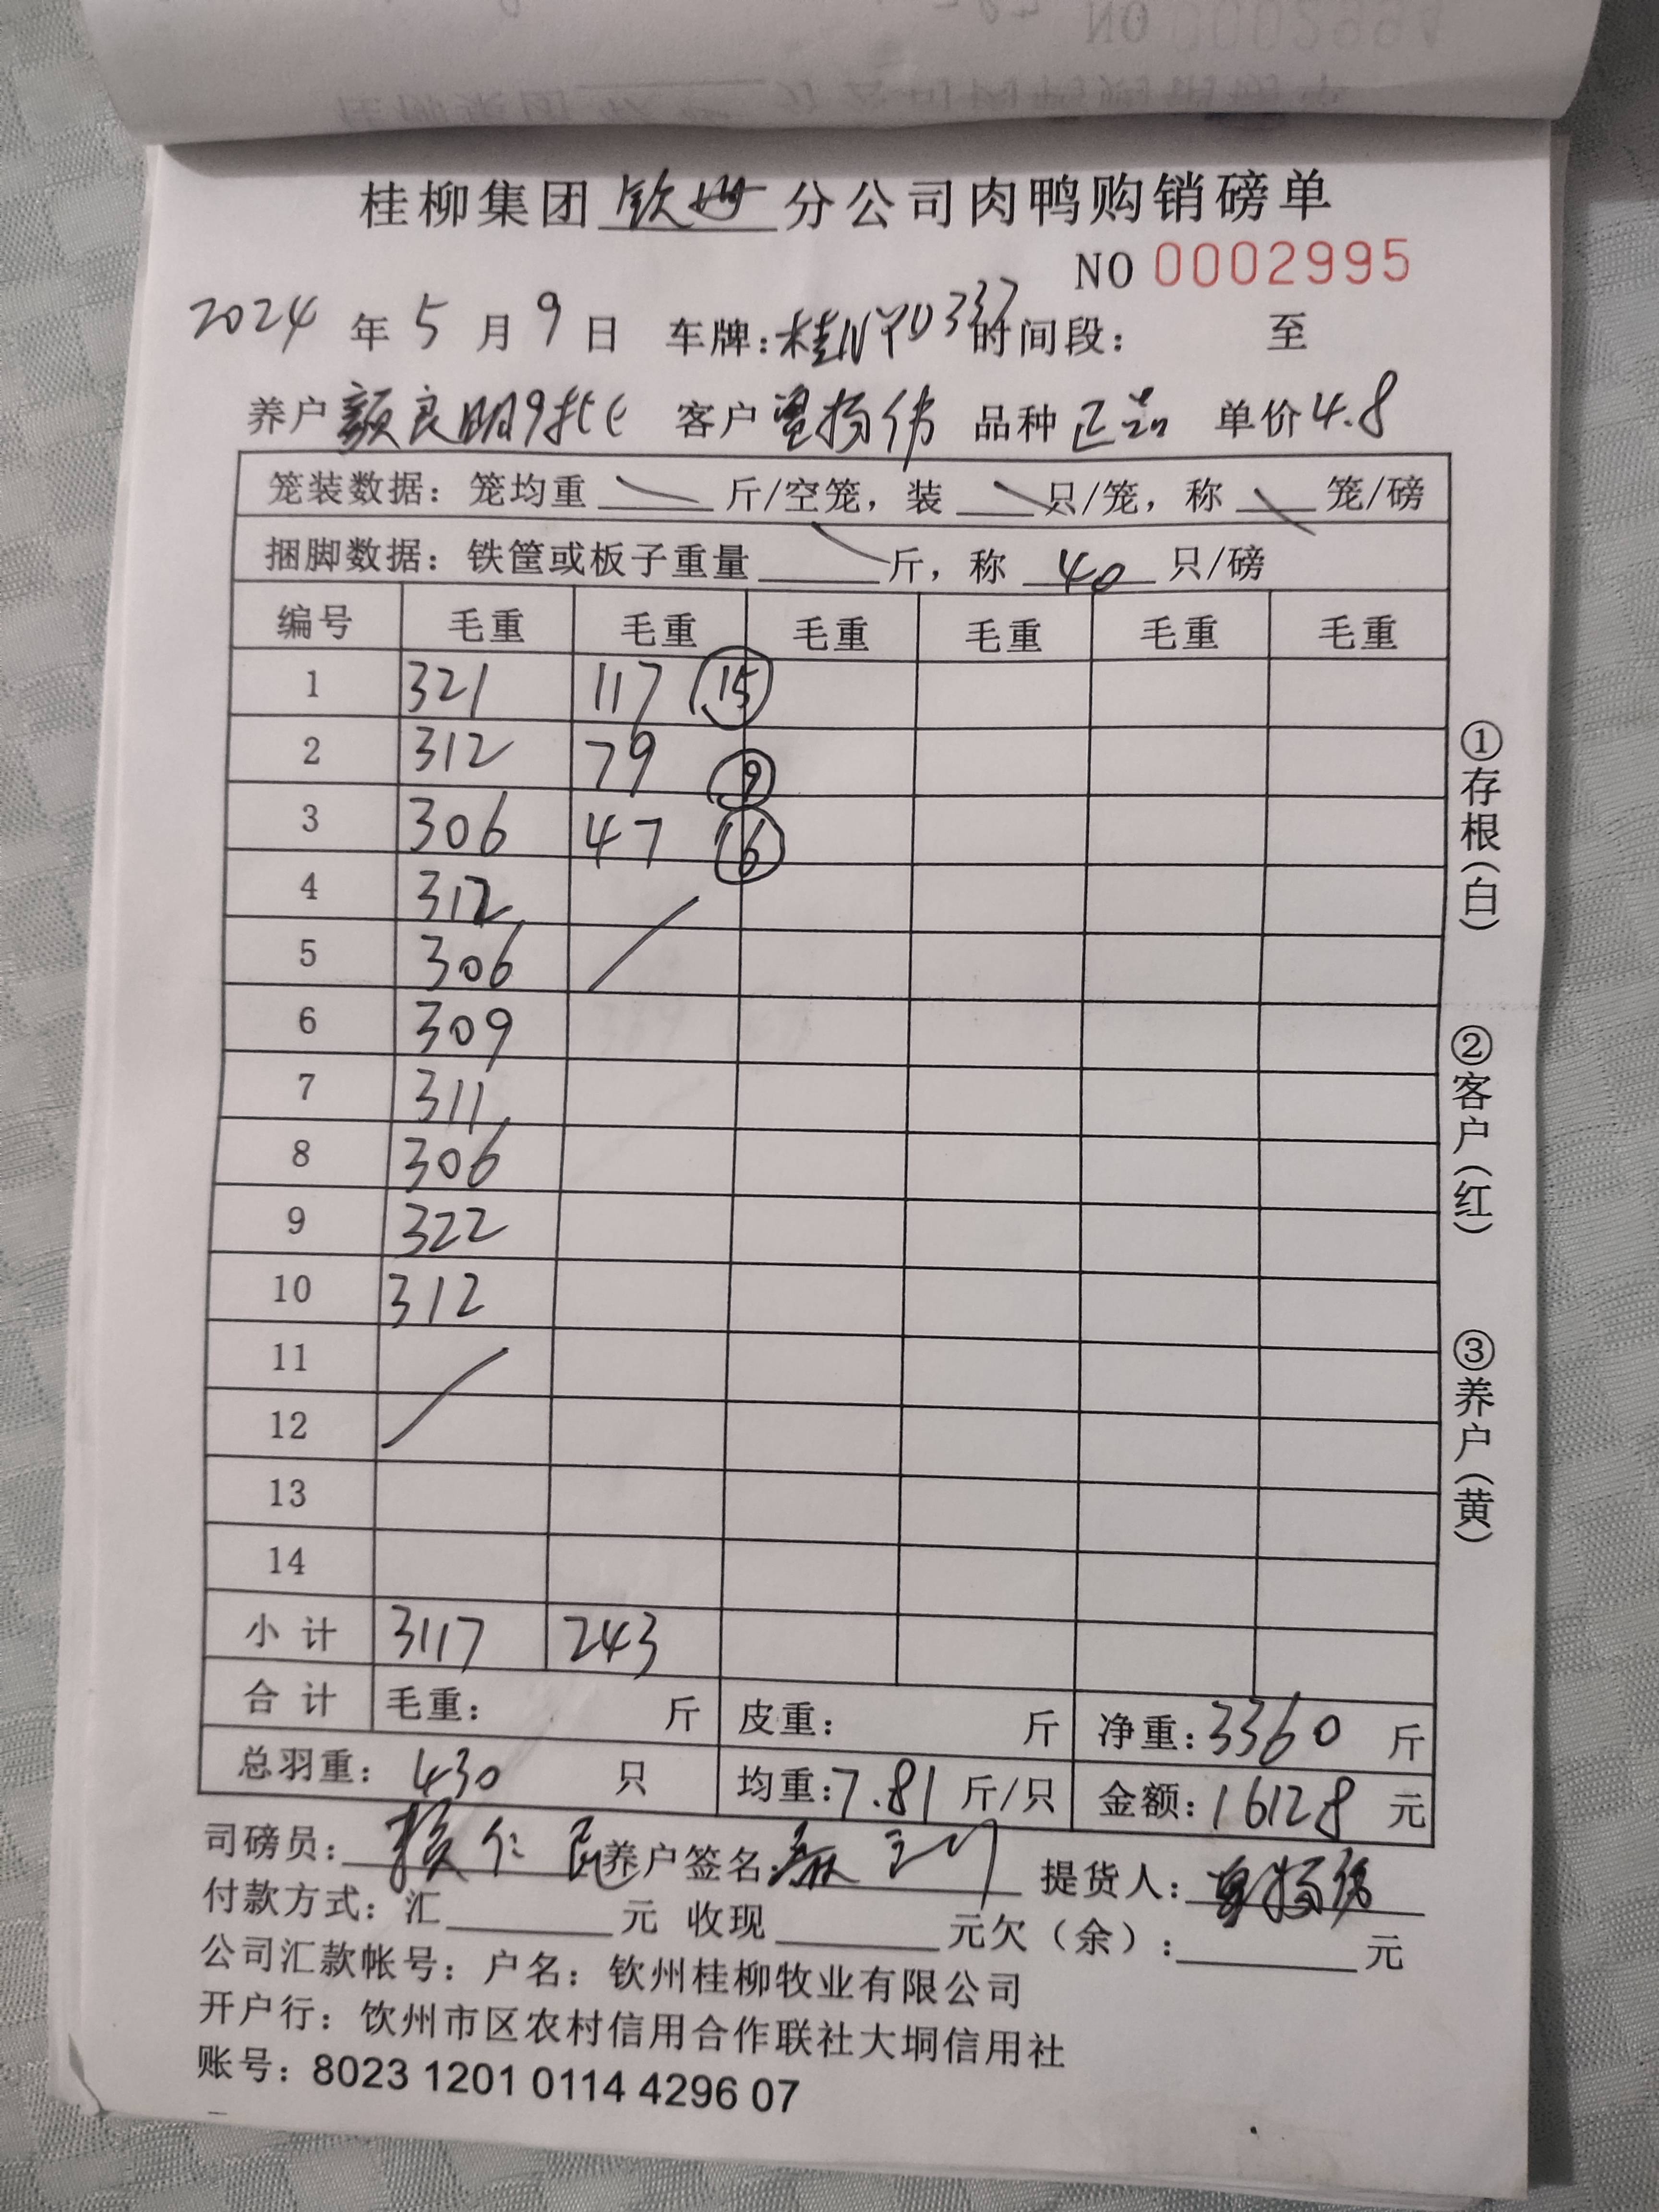 桂柳集团 钦州 分公司肉鸭购销磅单
NO 0002995
2024 年 5 月 9 日 车牌:桂NYD337 时间段: 至
养户 颜良明9批 客户 扬伟 品种 正品 单价 4.8
笼装数据: 笼均重 斤/空笼, 装 只/笼, 称 笼/磅
捆脚数据: 铁筐或板子重量 斤, 称 40 只/磅
编号 毛重 毛重 毛重 毛重 毛重 毛重
1 321 117 15
2 312 79 9
3 306 47 6
4 312
5 306
6 309
7 311
8 306
9 322
10 312
11
12
13
14
小计 3117 243
合计 毛重: 斤 皮重: 斤 净重:3360 斤
总羽重: 430 只 均重:7.81 斤/只 金额:16128 元
司磅员: 养户签名: 提货人: 扬伟
付款方式: 汇 元 收现 元欠(余): 元
公司汇款帐号: 户名: 钦州桂柳牧业有限公司
开户行: 钦州市区农村信用合作联社大垌信用社
账号: 8023 1201 0114 4296 07
①存根(白)
②客户(红)
③养户(黄)